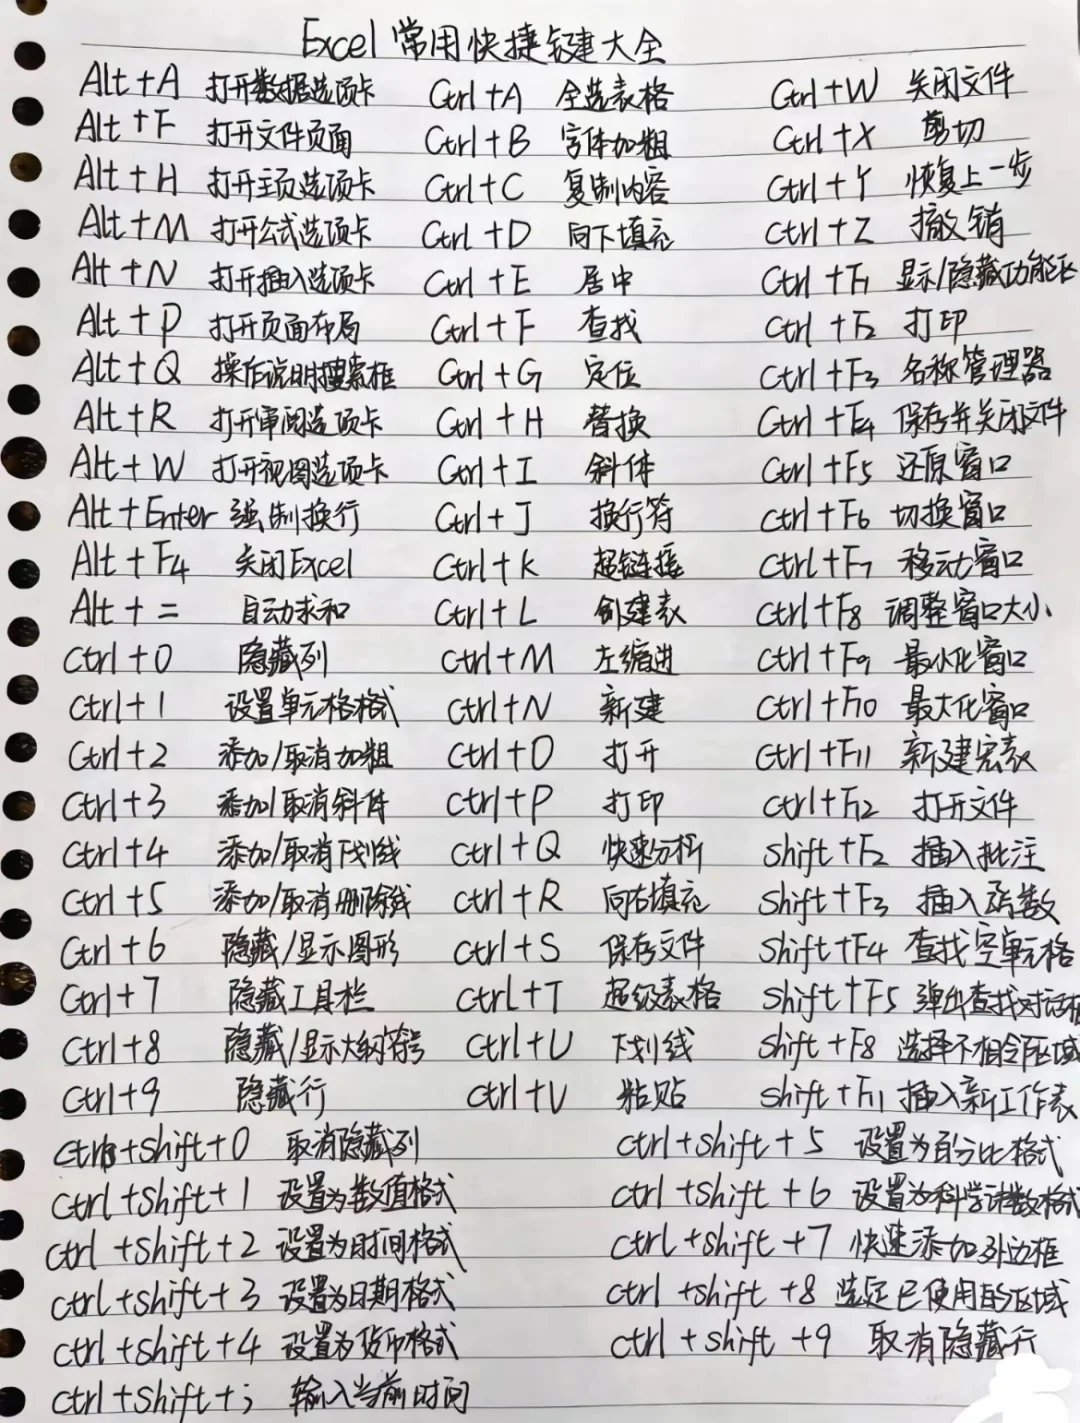 Excel 常用快捷键大全
Alt+A 打开数据选项卡 Ctrl+A 全选表格 Ctrl+W 关闭文件
Alt+F 打开文件页面 Ctrl+B 字体加粗 Ctrl+X 剪切
Alt+H 打开主页选项卡 Ctrl+C 复制内容 Ctrl+Y 恢复上一步
Alt+M 打开公式选项卡 Ctrl+D 向下填充 Ctrl+Z 撤销
Alt+N 打开插入选项卡 Ctrl+E 居中 Ctrl+F1 显示/隐藏功能区
Alt+P 打开页面布局 Ctrl+F 查找 Ctrl+F2 打印
Alt+Q 操作说明搜索框 Ctrl+G 定位 Ctrl+F3 名称管理器
Alt+R 打开审阅选项卡 Ctrl+H 替换 Ctrl+F4 保存并关闭文件
Alt+W 打开视图选项卡 Ctrl+I 斜体 Ctrl+F5 还原窗口
Alt+Enter 强制换行 Ctrl+J 换行符 Ctrl+F6 切换窗口
Alt+F4 关闭Excel Ctrl+K 超链接 Ctrl+F7 移动窗口
Alt+= 自动求和 Ctrl+L 创建表 Ctrl+F8 调整窗口大小
Ctrl+0 隐藏列 Ctrl+M 左缩进 Ctrl+F9 最小化窗口
Ctrl+1 设置单元格格式 Ctrl+N 新建 Ctrl+F10 最大化窗口
Ctrl+2 添加/取消加粗 Ctrl+O 打开 Ctrl+F11 新建宏表
Ctrl+3 添加/取消斜体 Ctrl+P 打印 Ctrl+F12 打开文件
Ctrl+4 添加/取消下划线 Ctrl+Q 快速分析 Shift+F2 插入批注
Ctrl+5 添加/取消删除线 Ctrl+R 向右填充 Shift+F3 插入函数
Ctrl+6 隐藏/显示图形 Ctrl+S 保存文件 Shift+F4 查找空单元格
Ctrl+7 隐藏工具栏 Ctrl+T 超级表格 Shift+F5 弹出查找对话框
Ctrl+8 隐藏/显示大纲符号 Ctrl+U 下划线 Shift+F8 选择不相邻区域
Ctrl+9 隐藏行 Ctrl+V 粘贴 Shift+F11 插入新工作表
Ctrl+Shift+0 取消隐藏列 Ctrl+Shift+5 设置为百分比格式
Ctrl+Shift+1 设置为数值格式 Ctrl+Shift+6 设置为科学计数格式
Ctrl+Shift+2 设置为时间格式 Ctrl+Shift+7 快速添加外边框
Ctrl+Shift+3 设置为日期格式 Ctrl+Shift+8 选定已使用的区域
Ctrl+Shift+4 设置为货币格式 Ctrl+Shift+9 取消隐藏行
Ctrl+Shift+; 输入当前时间